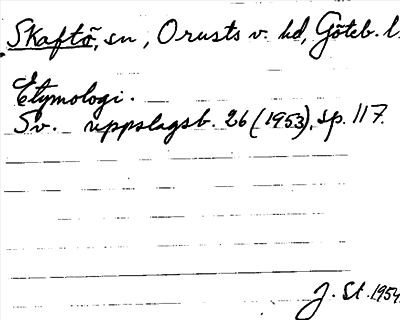 Skaftö, sn, Orusts v. hd, Göteb. l.
Etymologi.
Sv. uppslagsb. 26 (1953), sp. 117.
J. St. 1954